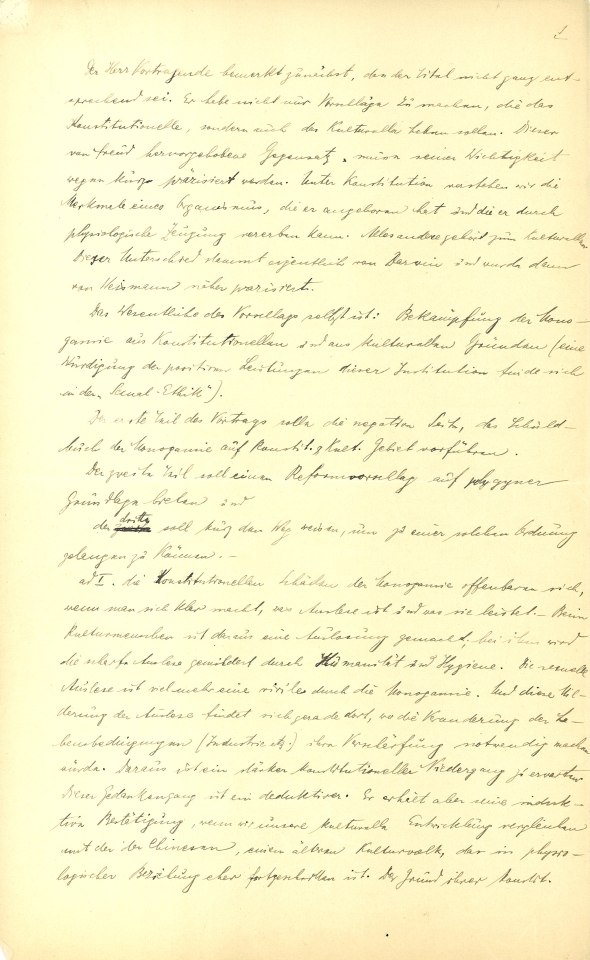 1
Der Herr Vortragende bemerkt zunächst, dass der Titel nicht ganz ent-
sprechend sei. Er habe nicht nur Vorschläge zu machen, die das
Konstitutionelle, sondern auch das Kulturelle heben sollen. Dieser
von Freud hervorgehobene Gegensatz, muss seiner Wichtigkeit
wegen kurz präzisiert werden. Unter Konstitution verstehen wir die
Merkmale eines Organismus, die er angeboren hat und die er durch
physiologische Zeugung vererben kann. Alles andere gehört zum Kulturellen.
Dieser Unterschied stammt eigentlich von Darwin und wurde dann
von Weismann näher präzisiert.
Das Wesentliche des Vorschlags selbst ist: Bekämpfung der Mono-
gamie aus Konstitutionellen und aus kulturellen Gründen (eine
Würdigung der positiven Leistungen dieser Institution finde sich
in der „Sexual-Ethik").
Der erste Teil des Vortrags solle die negative Seite, das Schuld-
buch der Monogamie auf konstit. & Kult. Gebiet vorführen.
Der zweite Teil soll einen Reformvorschlag auf polygyner
Grundlage bieten und
der dritte soll kurz den Weg weisen, um zu einer solchen Ordnung
gelangen zu können. —
ad I. die Konstitutionellen Schäden der Monogamie offenbaren sich,
wenn man sich klar macht, was Auslese ist und was sie leistet. — Beim
Kulturmenschen ist daraus eine gemacht, bei ihm wird
die scharfe Auslese gemildert durch Humanität und Hygiene. Die sexuelle
Auslese ist vielmehr eine durch die Monogamie. Und diese Mil-
derung der Auslese findet sich gerade dort, wo die Änderung der Le-
bensbedingungen (Industrie etc.) ihre Verschärfung notwendig machen
würde. Daraus ist ein starker konstitutioneller Niedergang zu erwarten.
Dieser Gedankengang ist ein deduktiver. Er erhält aber seine induk-
tive Bestätigung, wenn wir unsere kulturelle Entwicklung vergleichen
mit der der Chinesen, einem älteren Kulturvolk, das in physio-
logischer Beziehung eher fortgeschritten ist. Der Grund ihrer konstit.